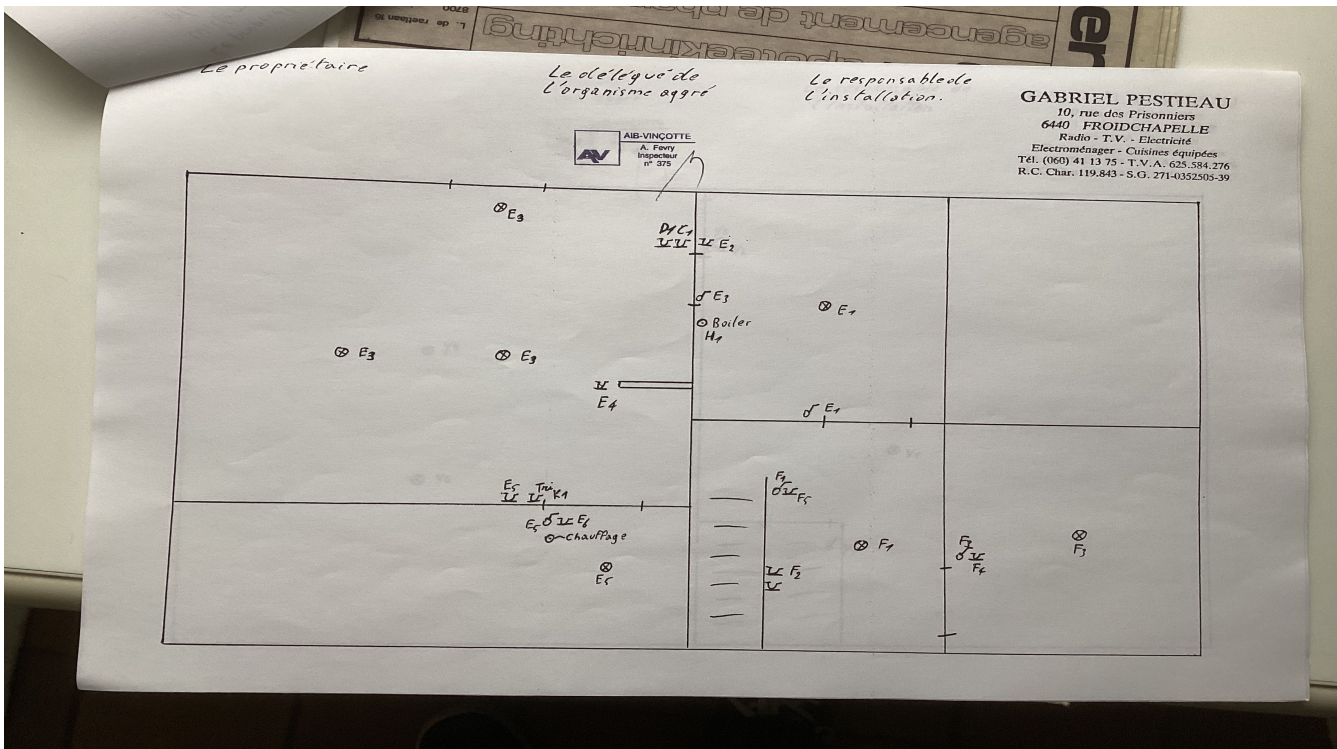 8700
L. de raetlaan 16
apoteekinrichting
agencement de pha
en
Le propriétaire
Le délégué de
L'organisme aggré
Le responsable de
L'installation.
GABRIEL PESTIEAU
10, rue des Prisonniers
6440 FROIDCHAPELLE
Radio - T.V. - Electricité
Electroménager - Cuisines équipées
Tél. (060) 41 13 75 - T.V.A. 625.584.276
R.C. Char. 119.843 - S.G. 271-0352505-39
AIB-VINÇOTTE
A. Fevry
Inspecteur
n° 375
AV
E3
D1 C1
E2
E3
E1
Boiler
H1
E3
E3
E4
E1
E5 Tri K1
E5 E6
Chauffage
E5
F1
F5
F1
F2
F3
F4
F3